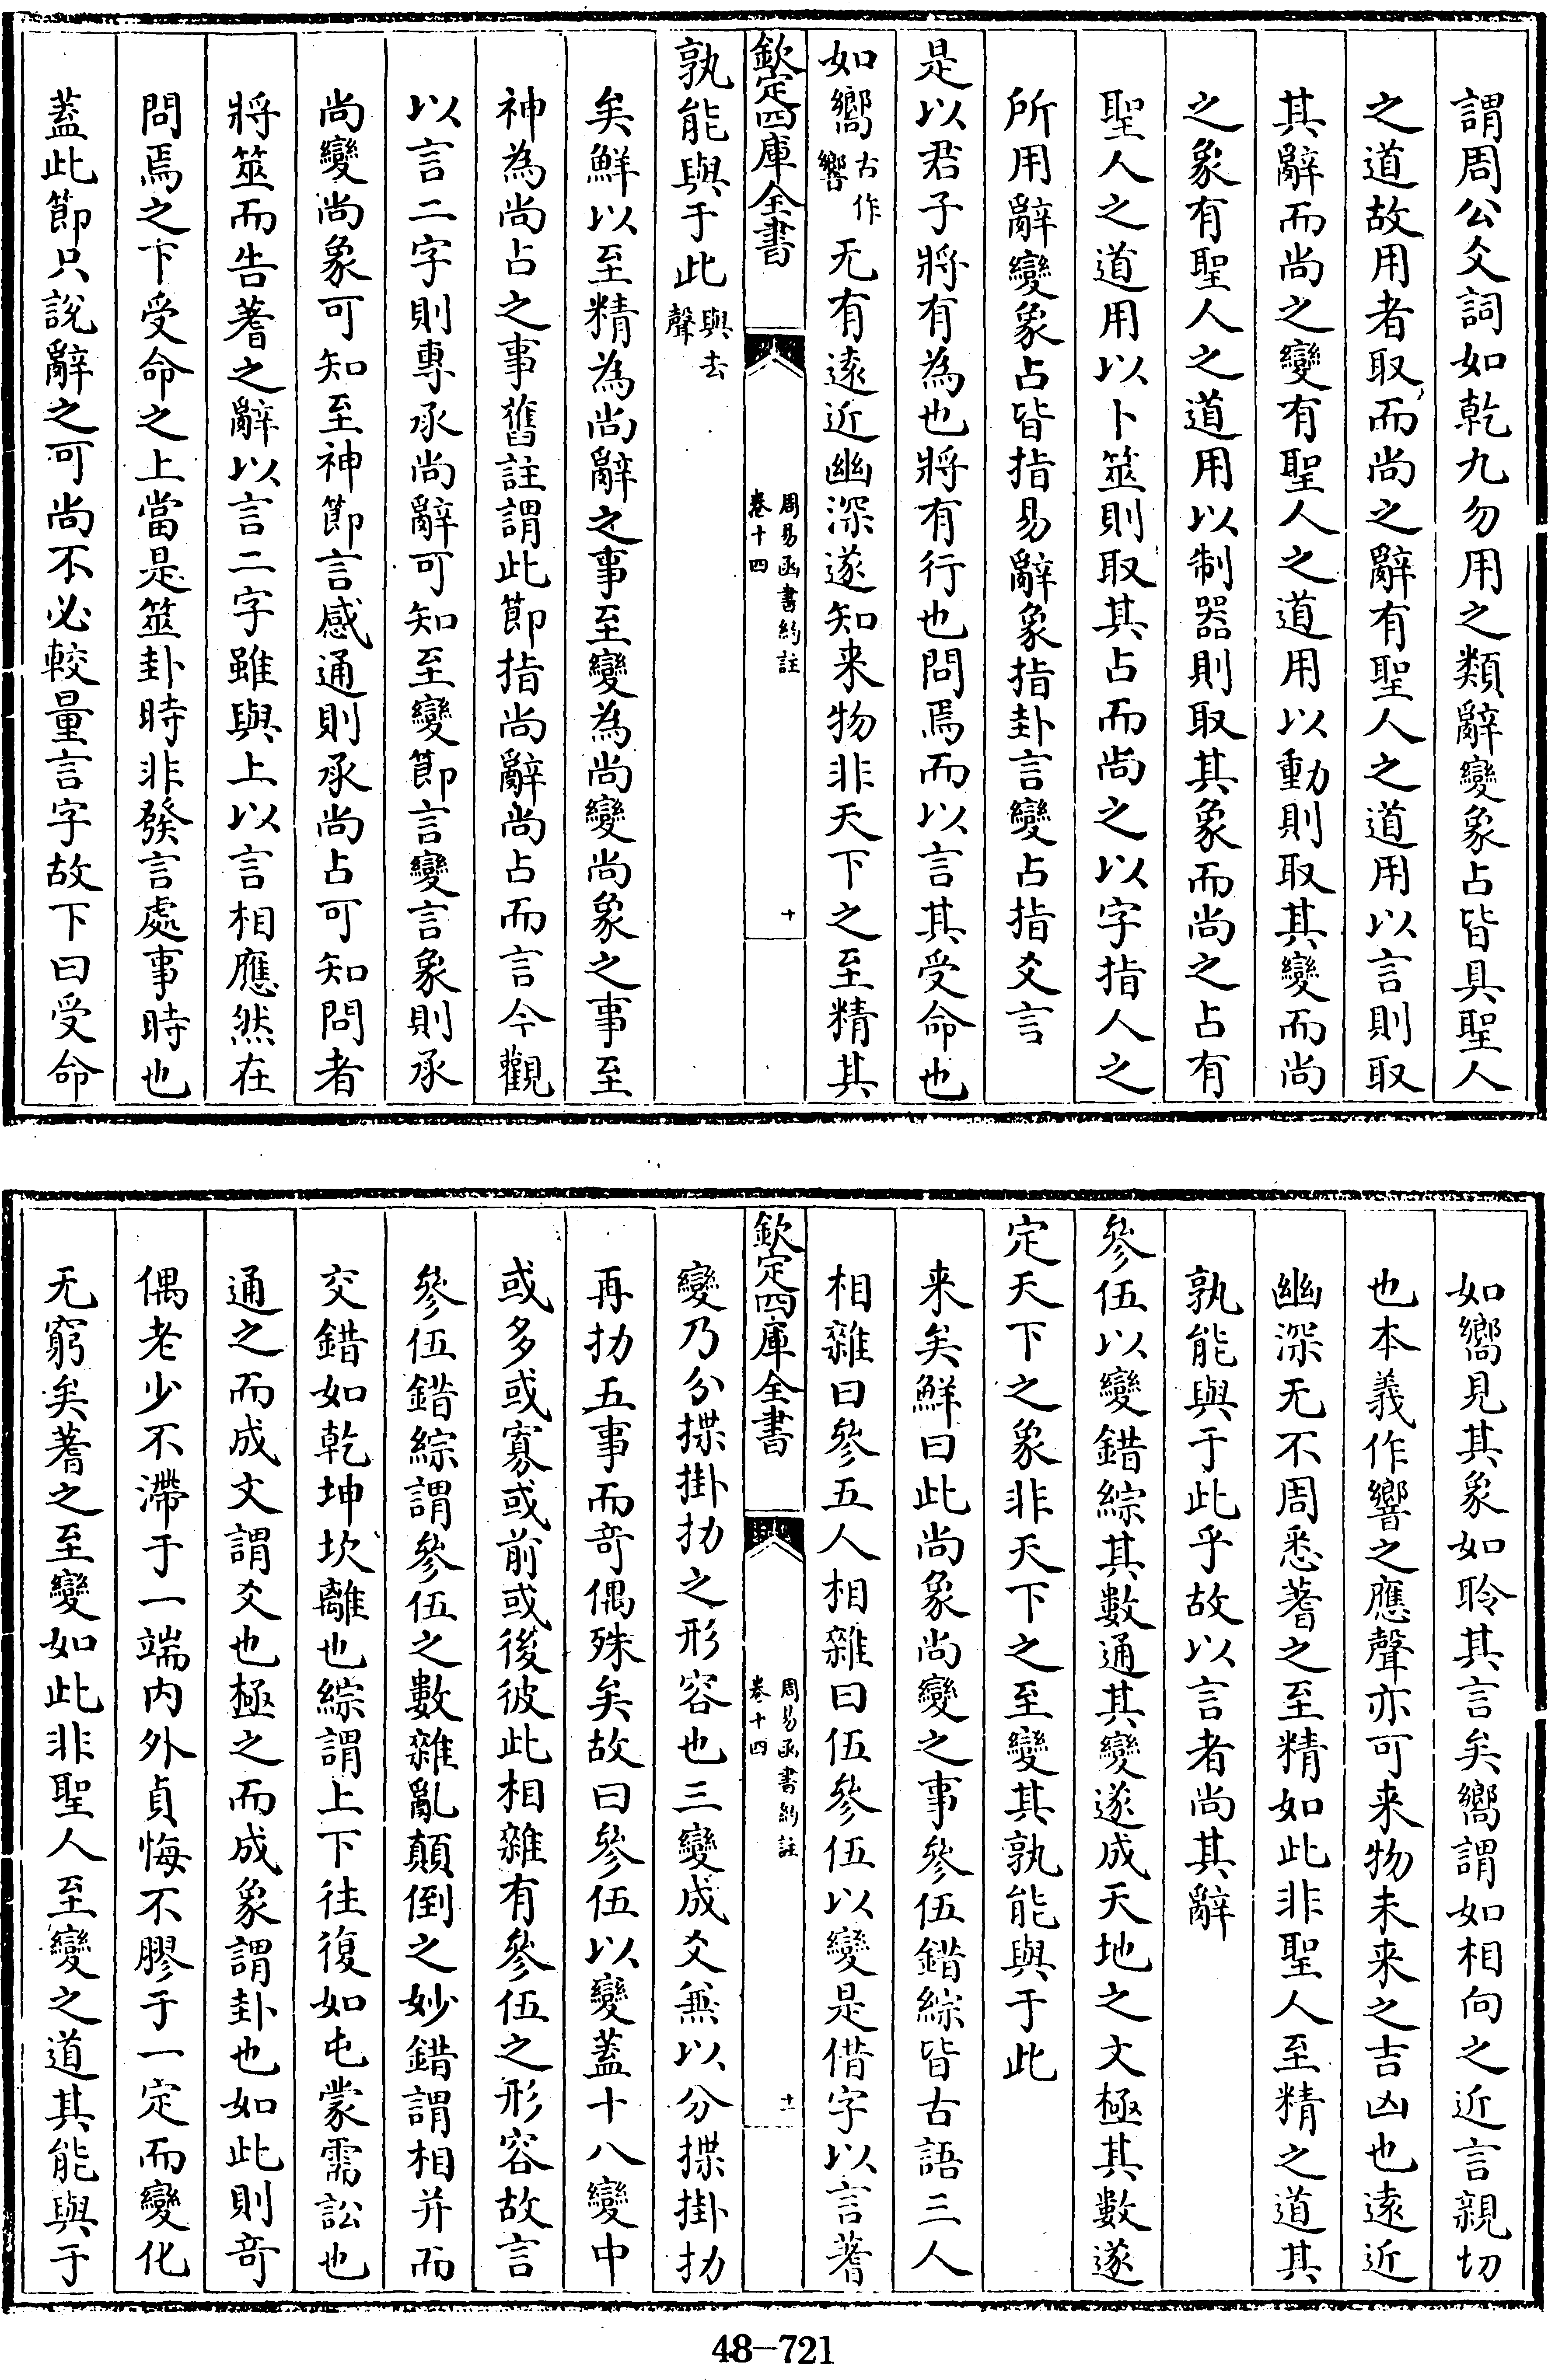 謂周公爻詞如乾九勿用之類辭變象占皆具聖人
之道故用者取而尚之辭有聖人之道用以言則取
其辭而尚之變有聖人之道用以動則取其變而尚
之象有聖人之道用以制器則取其象而尚之占有
聖人之道用以卜筮則取其占而尚之以字指人之
所用辭變象占皆指易辭象指卦言變占指爻言
是以君子將有為也將有行也問焉而以言其受命也
如嚮古作響无有遠近幽深遂知来物非天下之至精其
欽定四庫全書
周易函書約註
卷十四
十
孰能與于此與去聲
矣鮮以至精為尚辭之事至變為尚變尚象之事至
神為尚占之事舊註謂此節指尚辭尚占而言今觀
以言二字則專承尚辭可知至變節言變言象則承
尚變尚象可知至神節言感通則承尚占可知問者
將筮而告蓍之辭以言二字雖與上以言相應然在
問焉之下受命之上當是筮卦時非發言處事時也
蓋此節只說辭之可尚不必較量言字故下曰受命
如嚮見其象如聆其言矣嚮謂如相向之近言親切
也本義作響之應聲亦可来物未来之吉凶也遠近
幽深无不周悉蓍之至精如此非聖人至精之道其
孰能與于此乎故以言者尚其辭
參伍以變錯綜其數通其變遂成天地之文極其數遂
定天下之象非天下之至變其孰能與于此
来矣鮮曰此尚象尚變之事參伍錯綜皆古語三人
相雜曰參五人相雜曰伍參伍以變是借字以言蓍
欽定四庫全書
周易函書約註
卷十四
十一
變乃分揲掛扐之形容也三變成爻無以分揲掛扐
再扐五事而竒偶殊矣故曰參伍以變蓋十八變中
或多或寡或前或後彼此相雜有參伍之形容故言
參伍錯綜謂參伍之數雜亂顛倒之妙錯謂相并而
交錯如乾坤坎離也綜謂上下往復如屯蒙需訟也
通之而成文謂爻也極之而成象謂卦也如此則竒
偶老少不滯于一端内外貞悔不膠于一定而變化
无窮矣蓍之至變如此非聖人至變之道其能與于
48-721